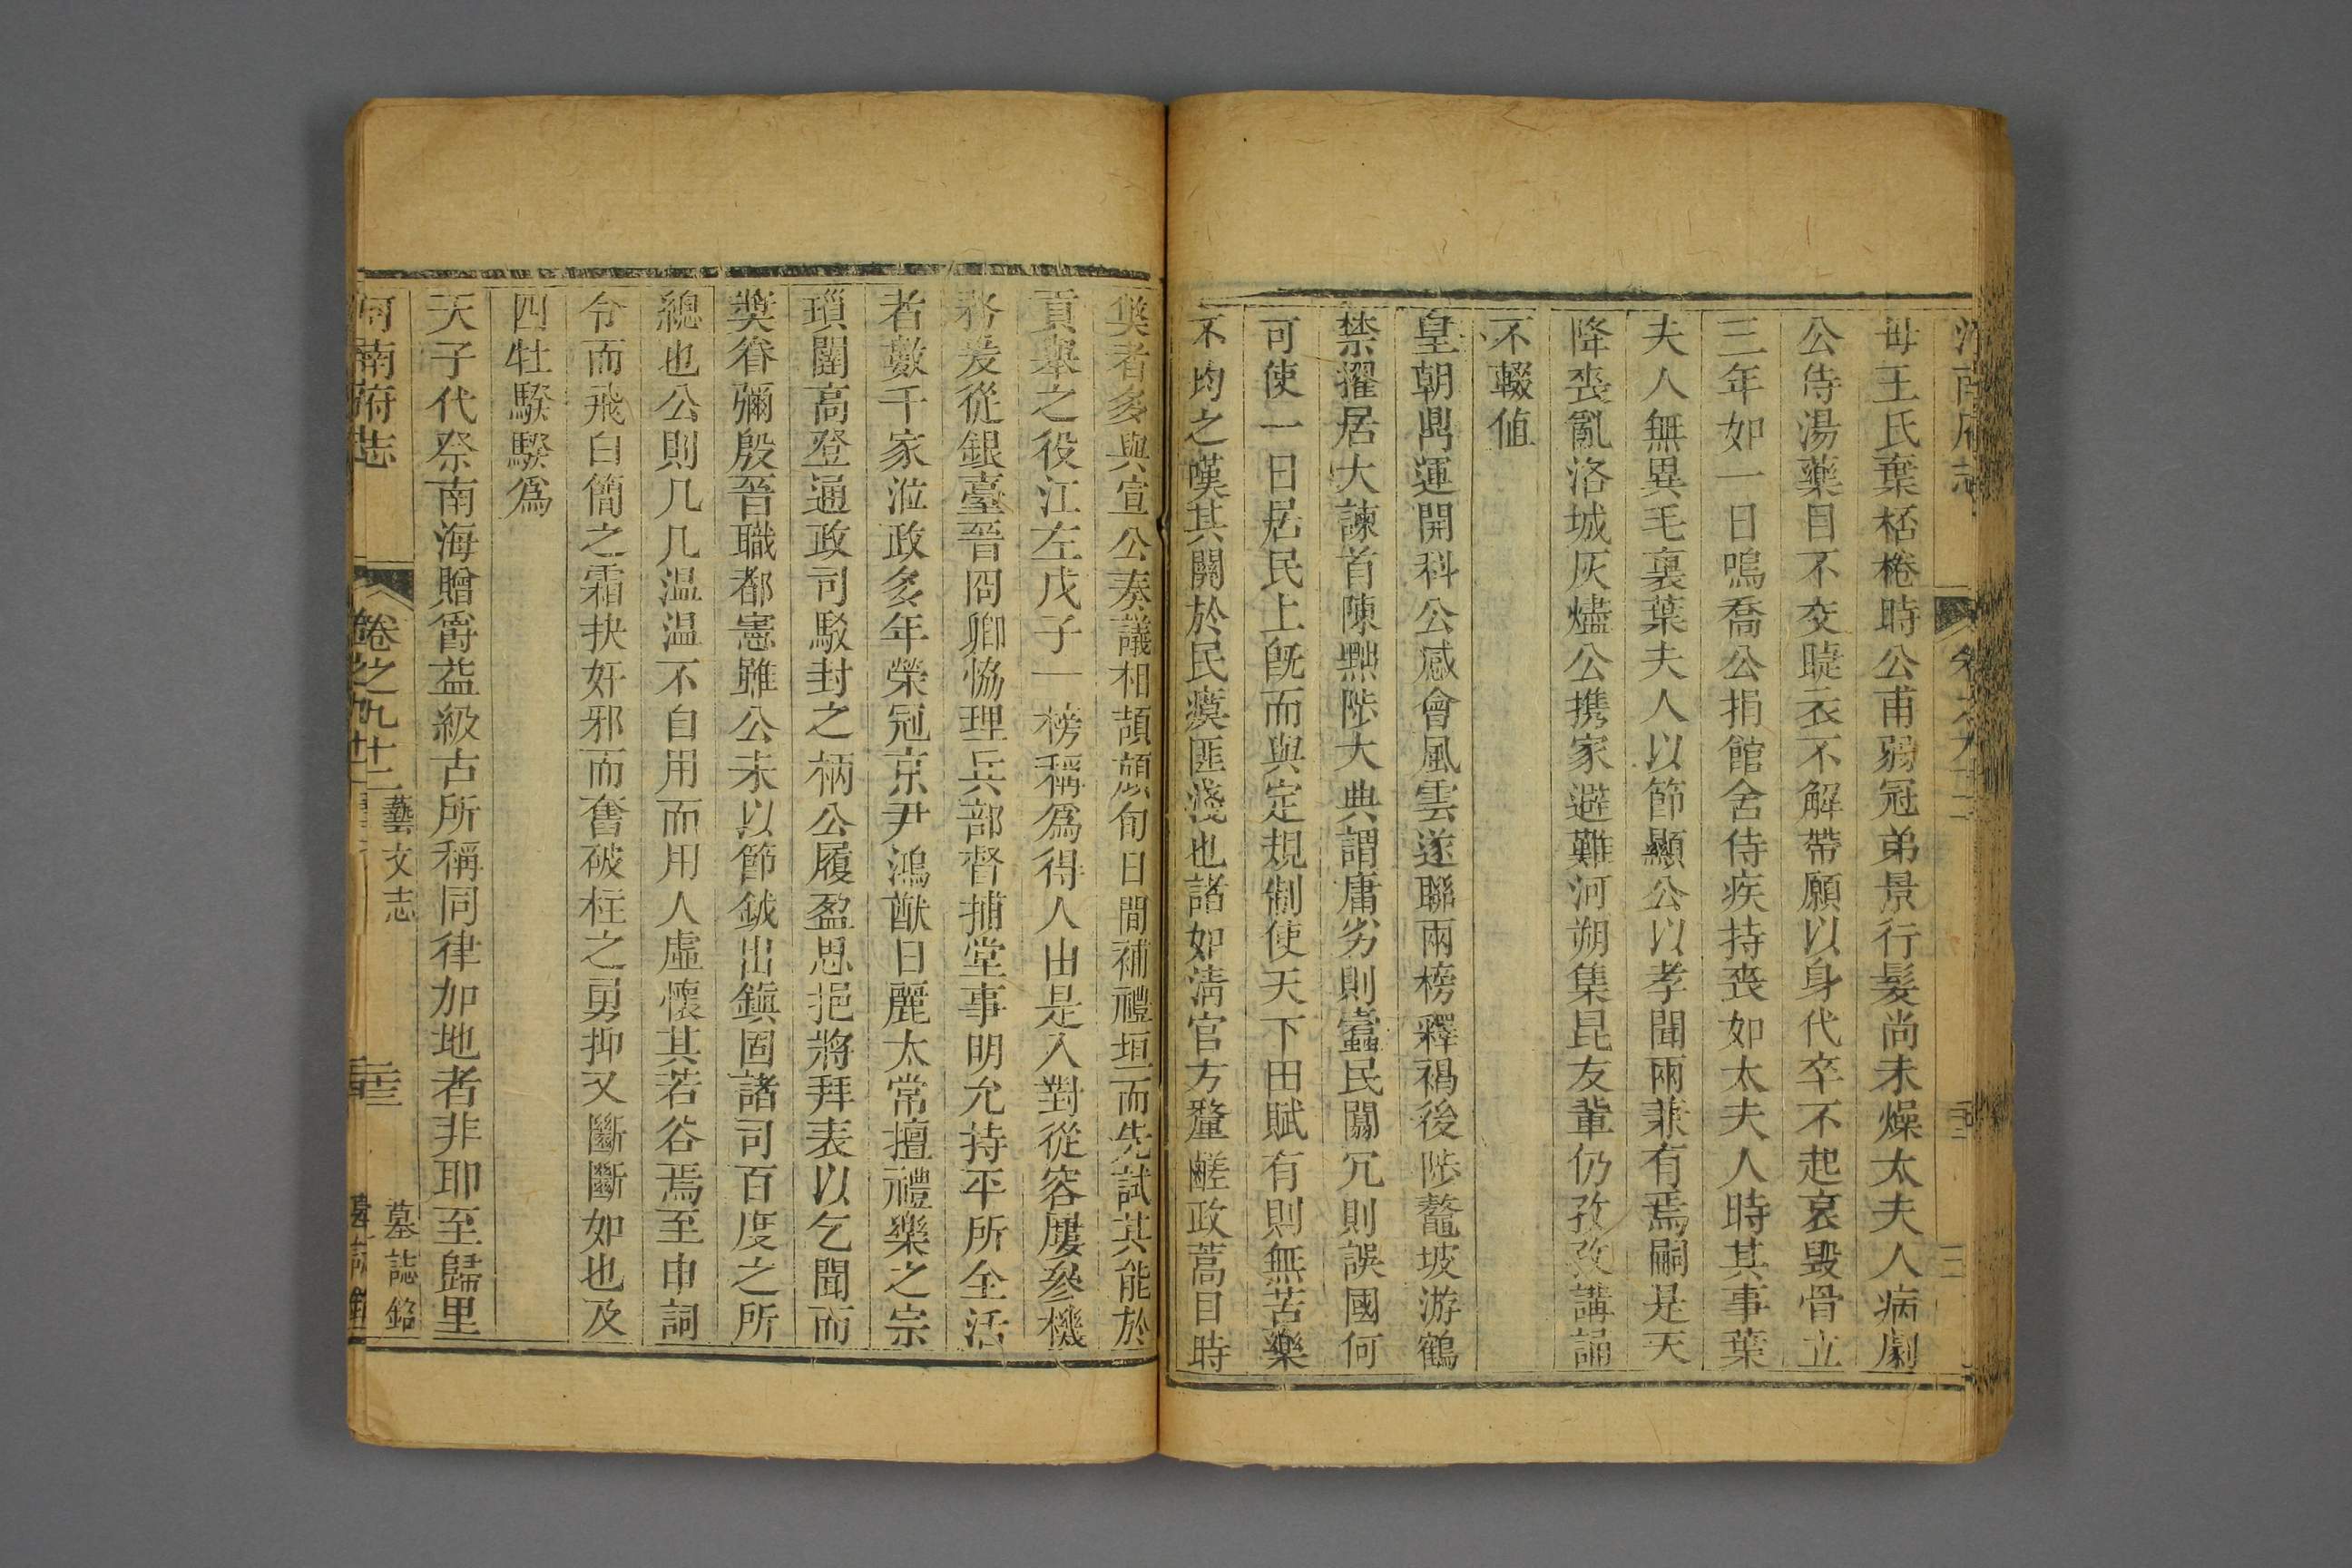 母王氏棄桮棬時公甫弱冠弟景行髮尚未燥太夫人病劇
公侍湯藥目不交睫衣不解帶願以身代卒不起哀毀骨立
三年如一日嗚喬公捐館舍侍疾持喪如太夫人時其事葉
夫人無異毛裏葉夫人以節顯公以孝聞兩兼有焉嗣是天
降喪亂洛城灰燼公携家避難河朔集昆友輩仍孜孜講誦
不輟値
皇朝鼎運開科公感會風雲遂聯兩榜釋褐後陟鼇坡游鶴
禁擢居大諫首陳黜陟大典謂庸劣則蠧民闒冗則誤國何
可使一日居民上旣而與定規制使天下田賦有則無苦樂
不均之嘆其關於民瘼匪淺也諸如淸官方釐鹺政蒿目時
獘者多與宣公奏議相頡頏旬日間補禮垣而先試其能於
貢舉之役江左戊子一榜稱爲得人由是入對從容屢參機
務爰從銀臺晉冏卿恊理兵部督捕堂事明允持平所全活
者數千家涖政多年榮冠京尹鴻猷日麗太常擅禮樂之宗
瑣闥高登通政司駁封之柄公履盈思挹將拜表以乞閒而
獎眷彌殷晉職都憲雖公未以節鉞出鎭固諸司百度之所
總也公則几几温温不自用而用人虛懷其若谷焉至申詞
令而飛白簡之霜抉奸邪而奮破柱之勇抑又斷斷如也及
四牡騤騤爲
天子代祭南海贈爵益級古所稱同律加地者非耶至歸里
河南府志 卷之九十二 藝文志 墓誌銘